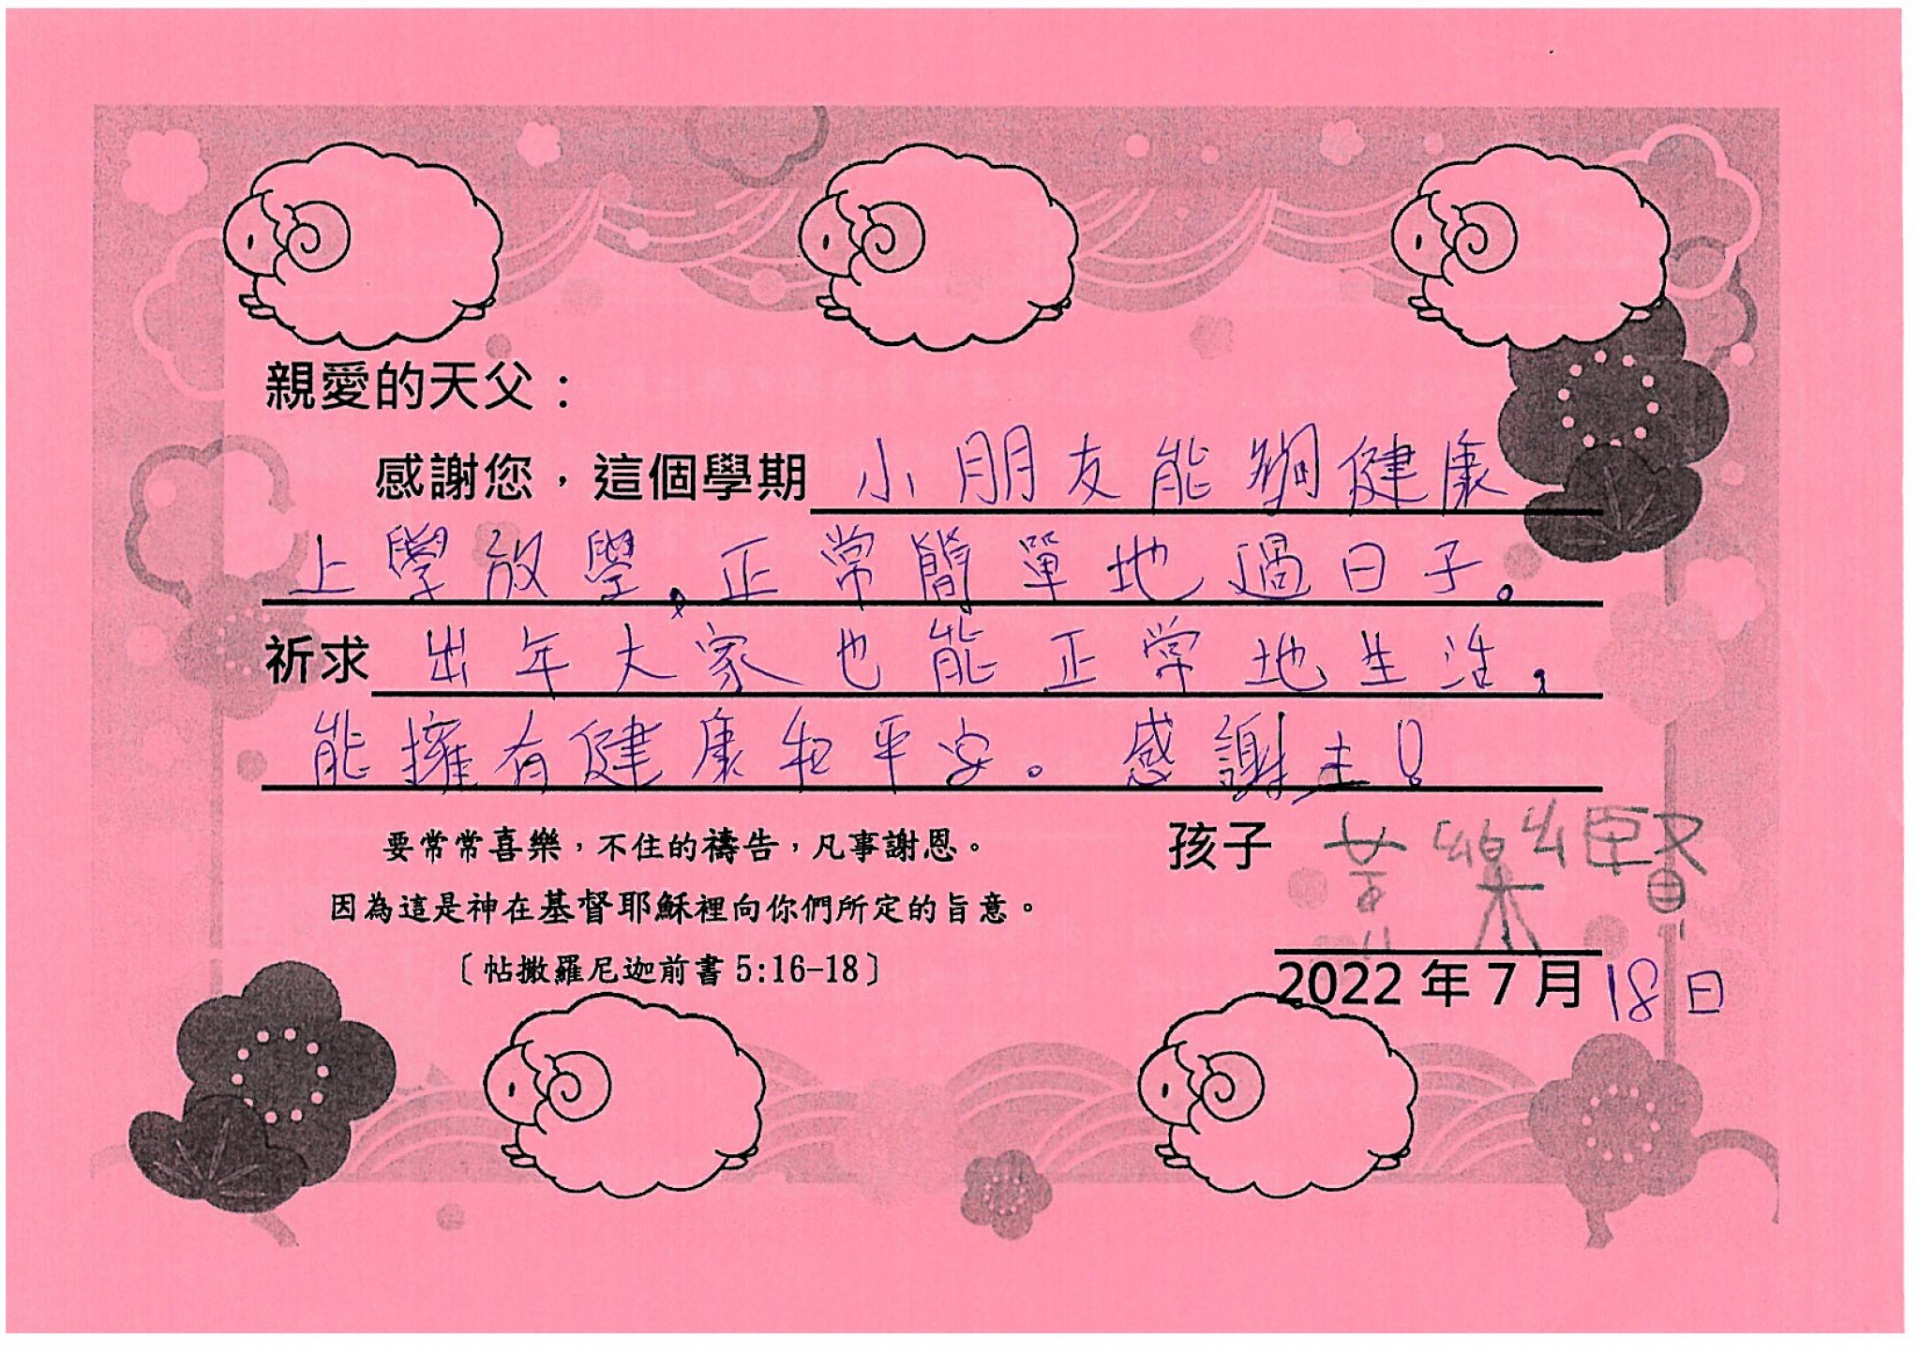 親愛的天父：
感謝您，這個學期 小朋友能夠健康
上學放學，正常簡單地過日子。
祈求 出年大家也能正常地生活，
能擁有健康和平安。感謝主！
要常常喜樂，不住的禱告，凡事謝恩。
因為這是神在基督耶穌裡向你們所定的旨意。
〔帖撒羅尼迦前書 5:16-18〕
孩子 黃樂賢
2022 年 7 月 18 日